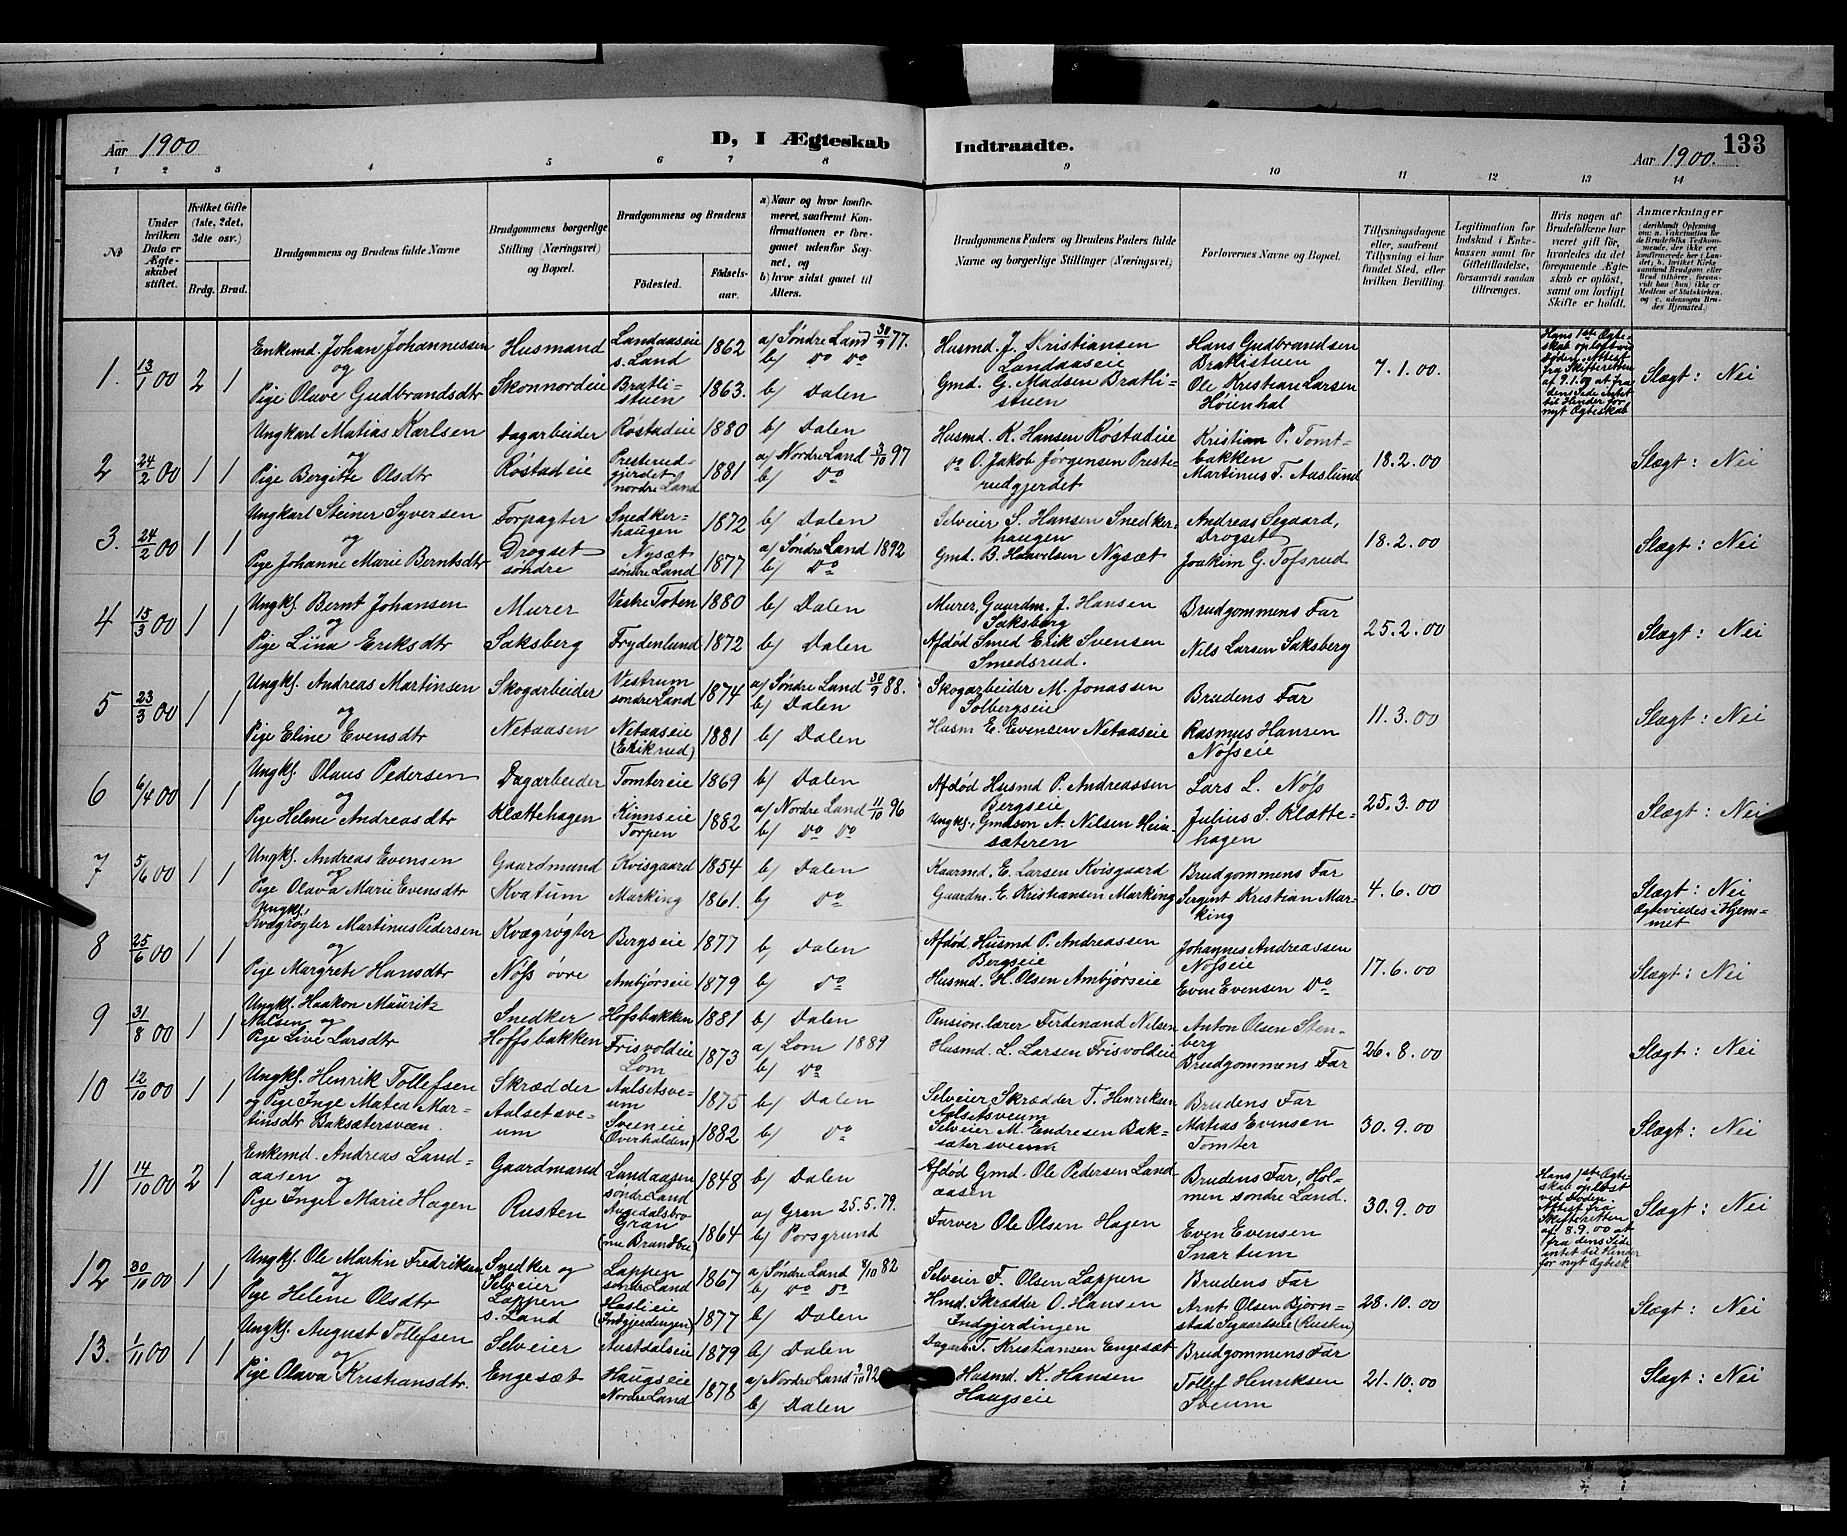 Aar 1900 D, I Ægteskab Indtraadte. Aar 1900. 133
1 2 3 4 5 6 7 8 9 10 11 12 13 14
№
Under hvilken Dato er Ægteskabet stiftet.
Hvilket Gifte (1ste, 2det, 3die osv.)
Brdg. Brud.
Brudgommens og Brudens fulde Navne
Brudgommens borgerlige Stilling (Næringsvei) og Bopæl.
Brudgommens og Brudens
Födested. Födselsaar.
a) Naar og hvor konfirmeret, saafremt Konfirmationen er foregaaet udenför Sognet, og
b) hvor sidst gaaet til Alters.
Brudgommens Faders og Brudens Faders fulde Navne og borgerlige Stillinger (Næringsvei)
Forlovernes Navne og Bopæl.
Tillysningsdagene eller, saafremt Tillysning ei har fundet Sted, efter hvilken Bevilling.
Legitimation for Indskud i Enkekassen samt for Giftetilladelse, forsaavidt saadan tiltrænges.
Hvis nogen af Brudefolkene har været gift för, hvorledes da det foregaaende Ægteskab er oplöst, samt om lovligt Skifte er holdt.
Anmærkninger
1. 13/1 00 2 1
Enkemd. Johan Johannessen
og
Pige Olave Gudbrandsdtr
Husmand
Skonnordeie
Landaaseie
s. Land 1862
Bratlistuen 1863.
a) Søndre Land 30/9 77.
b) Do Do
b) Dalen
Husmd. J. Kristiansen
Landaaseie
Gmd. G. Madsen Bratlistuen
Hans Gudbrandsen
Bratlistuen
Ole Kristian Larsen
Høienhal
7.1.00.
Hans 1ste Ægteskab opløst ved Døden. Attest fra Skifteretten af 9.1.00 at fra dens Side intet til Hinder for nyt Ægteskab
Slægt: Nei
2 24/2 00 1 1
Ungkarl Matias Karlsen
og
Pige Bergitte Olsdtr
Dagarbeider
Røstadeie
Røstadeie 1880
Presterudgjerdet
nordre Land 1881
b) Dalen
a) Nordre Land 3/10 97
b) Do
Husmd. K. Hansen Røstadeie
Do O. Jakob Jørgensen Presterudgjerdet
Kristian P. Tomtbakken
Martinus T. Aaslund
18.2.00
Slægt: Nei
3. 24/2 00 1 1
Ungkarl Steiner Syversen
og
Pige Johanne Marie Berntsdtr
Forpagter
Drogset
søndre
Snedkerhaugen 1872
Nysæt
søndre Land 1877
b) Dalen
a) Søndre Land 1892
b) Do
Selveier S. Hansen Snedkerhaugen
Gmd. B. Haavelsen Nysæt
Andreas Segaard,
Drogset
Joakim G. Tofsrud
18.2.00
Slægt: Nei
4 15/3 00 1 1
Ungkf. Bernt Johansen
og
Pige Lina Eriksdtr
Murer
Saksberg
Vestre Toten 1880
Frydenlund 1872
b) Dalen
b) Dalen
Murer, Gaardm. J. Hansen
Saksberg
Afdød Smed Erik Svensen
Smedsrud.
Brudgommens Far
Nils Larsen Saksberg
25.2.00
Slægt: Nei
5 23/3 00 1 1
Ungkf. Andreas Martinsen
og
Pige Eline Evensdtr
Skogarbeider
Netaasen
Vestrum
søndre Land 1874
Netaaseie
(Erikrud) 1881
a) Søndre Land 30/9 88.
b) Dalen
b) Dalen
Skogarbeider M. Jonassen
Solbergseie
Husm E. Evensen Netaaseie
Brudens Far
Rasmus Hansen
Nøfseie
11.3.00
Slægt: Nei
6 6/4 00 1 1
Ungkf. Olaus Pedersen
og
Pige Helene Andreasdtr
Dagarbeider
Klættehagen
Tomtereie 1869
Kinnseie
Torpen 1882
b) Dalen
a) Nordre Land 11/10 96
b) Do Do
Afdød Husmd P. Andreassen
Bergseie
Ungkf. Gmdsøn A. Nilsen Heimsæteren
Lars L. Nøfs
Julius S. Klættehagen
25.3.00
Slægt: Nei
7 5/6 00 1 1
Ungkf. Andreas Evensen
og
Pige Olava Marie Evensdtr
Gaardmand
Kvatum
Kvisgaard 1854
Marking 1861.
b) Dalen
b) Do
Kaarmd. E. Larsen Kvisgaard
Gaardm. E. Kristiansen Marking
Brudgommens Far
Sergent Kristian Marking
4.6.00
Slægt: Nei
Ægteviedes i Hjemmet
8 25/6 00 1 1
Ungkf.
Kvægrøgter Martinus Pedersen
og
Pige Margrete Hansdtr
Kvægrøgter
Nøfs øvre
Bergseie 1877
Ambjørseie 1879
b) Dalen
b) Do
Afdød Husmd P. Andreassen
Bergseie
Husmd. H. Olsen Ambjørseie
Johannes Andreassen
Nøfseie
Even Evensen Do
17.6.00
Slægt: Nei
9 31/8 00 1 1
Ungkf. Haakon Mauritz
Nilsen og
Pige Live Larsdtr
Snedker
Hoffsbakken
Hofsbakken 1881
Frisvoldeie
Lom 1873
b) Dalen
a) Lom 1889
b) Do
Pension. lærer Ferdinand Nilsen
Husmd. L. Larsen Frisvoldeie
Anton Olsen Stenberg
Brudgommens Far
26.8.00
Slægt: Nei
10 12/10 00 1 1
Ungkf. Henrik Tollefsen
og Pige Inge Matea Martinsdtr Baksætersvæen.
Skrædder
Aalsetsveum
Aalsetsveum 1875
Sveeneie
(Overhalden) 1882
b) Dalen
b) Do
Selveier Skrædder T. Henriksen
Aalsetsveum
Selveier M. Endresen Baksætersveum
Brudens Far
Matias Evensen
Tomter
30.9.00
Slægt: Nei
11 14/10 00 2 1
Enkemd. Andreas Landaasen og
Pige Inger Marie Hagen
Gaardmand
Rusten
Landaasen
søndre Land 1848
Augedalsbro
Gran
(nu Brandbu) 1864
b) Dalen
a) Gran 25.5.79.
b) Porsgrund
Afdød Gmd. Ole Pedersen Landaasen
Farver Ole Olsen Hagen
Brudens Far, Holmen søndre Land.
Even Evensen
Snartum
30.9.00
Hans 1ste Ægteskab opløst ved Døden. Attest fra Skifteretten af 8.9.00 at fra dens Side intet til Hinder for nyt Ægtesk
Slægt: Nei
12 30/10 00 1 1
Ungkf. Ole Martin Fredriksen
og
Pige Helene Olsdtr
Snedker og
Selveier
Lappen
s. Land
Lappen
søndre Land 1867
Haslieie
(Indgjerdingen) 1877
a) Søndre Land 8/10 82
b) Do Do
b) Dalen
Selveier F. Olsen Lappen
Hmd. Skrædder O. Hansen
Indgjerdingen
Brudens Far
Arnt Olsen Bjørnstad Segaardseie (Rusten)
28.10.00
Slægt: Nei
13. 1/11 00 1 1
Ungkf. August Tollefsen
og
Pige Olava Kristiansdtr.
Selveier
Engesæt
Austdalseie 1879
Haugseie
Nordre Land 1878
b) Dalen
a) Nordre Land 2/10 92
b) Dalen
Dagarb. T. Kristiansen Engesæt
Husmd. K. Hansen
Haugseie
Brudgommens Far
Tollef Henriksen
Sveum
21.10.00
Slægt: Nei